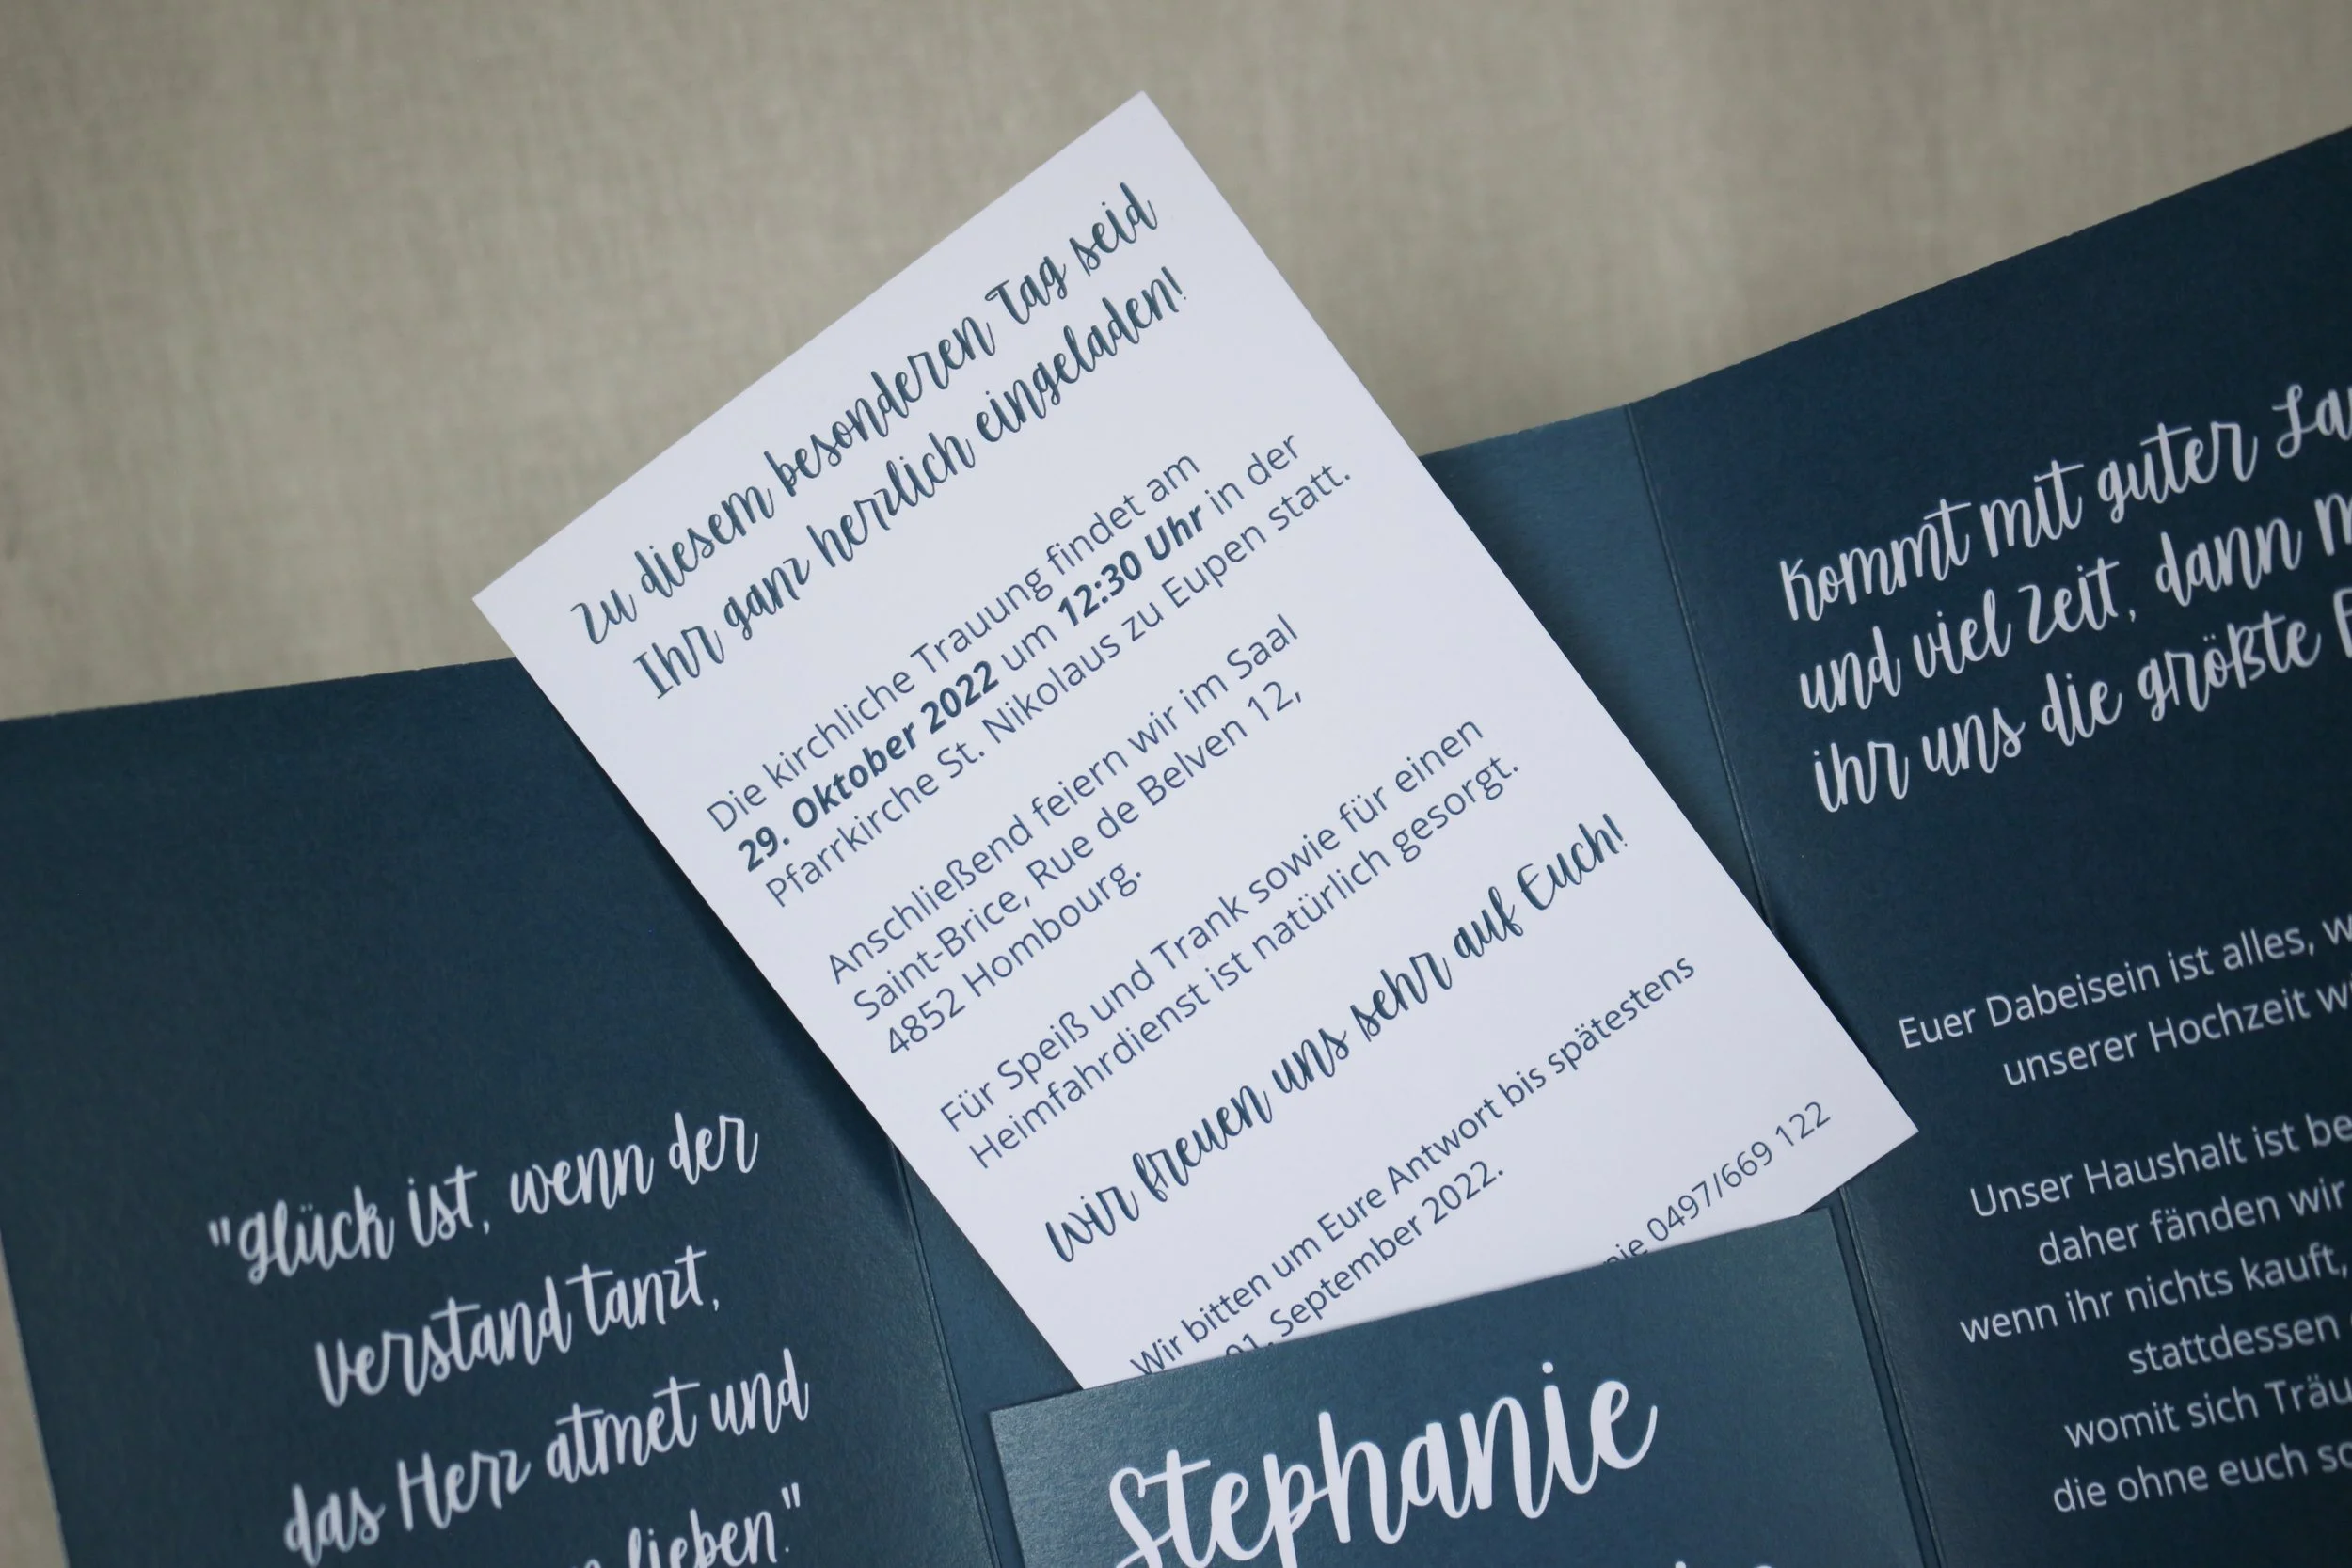 Zu diesem besonderen Tag seid
Ihr ganz herzlich eingeladen!
Die kirchliche Trauung findet am
29. Oktober 2022 um 12:30 Uhr in der
Pfarrkirche St. Nikolaus zu Eupen statt.
Anschließend feiern wir im Saal
Saint-Brice, Rue de Belven 12,
4852 Hombourg.
Für Speiß und Trank sowie für einen
Heimfahrdienst ist natürlich gesorgt.
Wir freuen uns sehr auf Euch!
Wir bitten um Eure Antwort bis spätestens
01. September 2022.
0497/669 122
"Glück ist, wenn der
Verstand tanzt,
das Herz atmet und
lieben."
Stephanie
Kommt mit guter
und viel Zeit, dann
ihr uns die größte
Euer Dabeisein ist alles,
unserer Hochzeit
Unser Haushalt ist
daher fänden wir
wenn ihr nichts kauft,
stattdessen
womit sich
die ohne euch